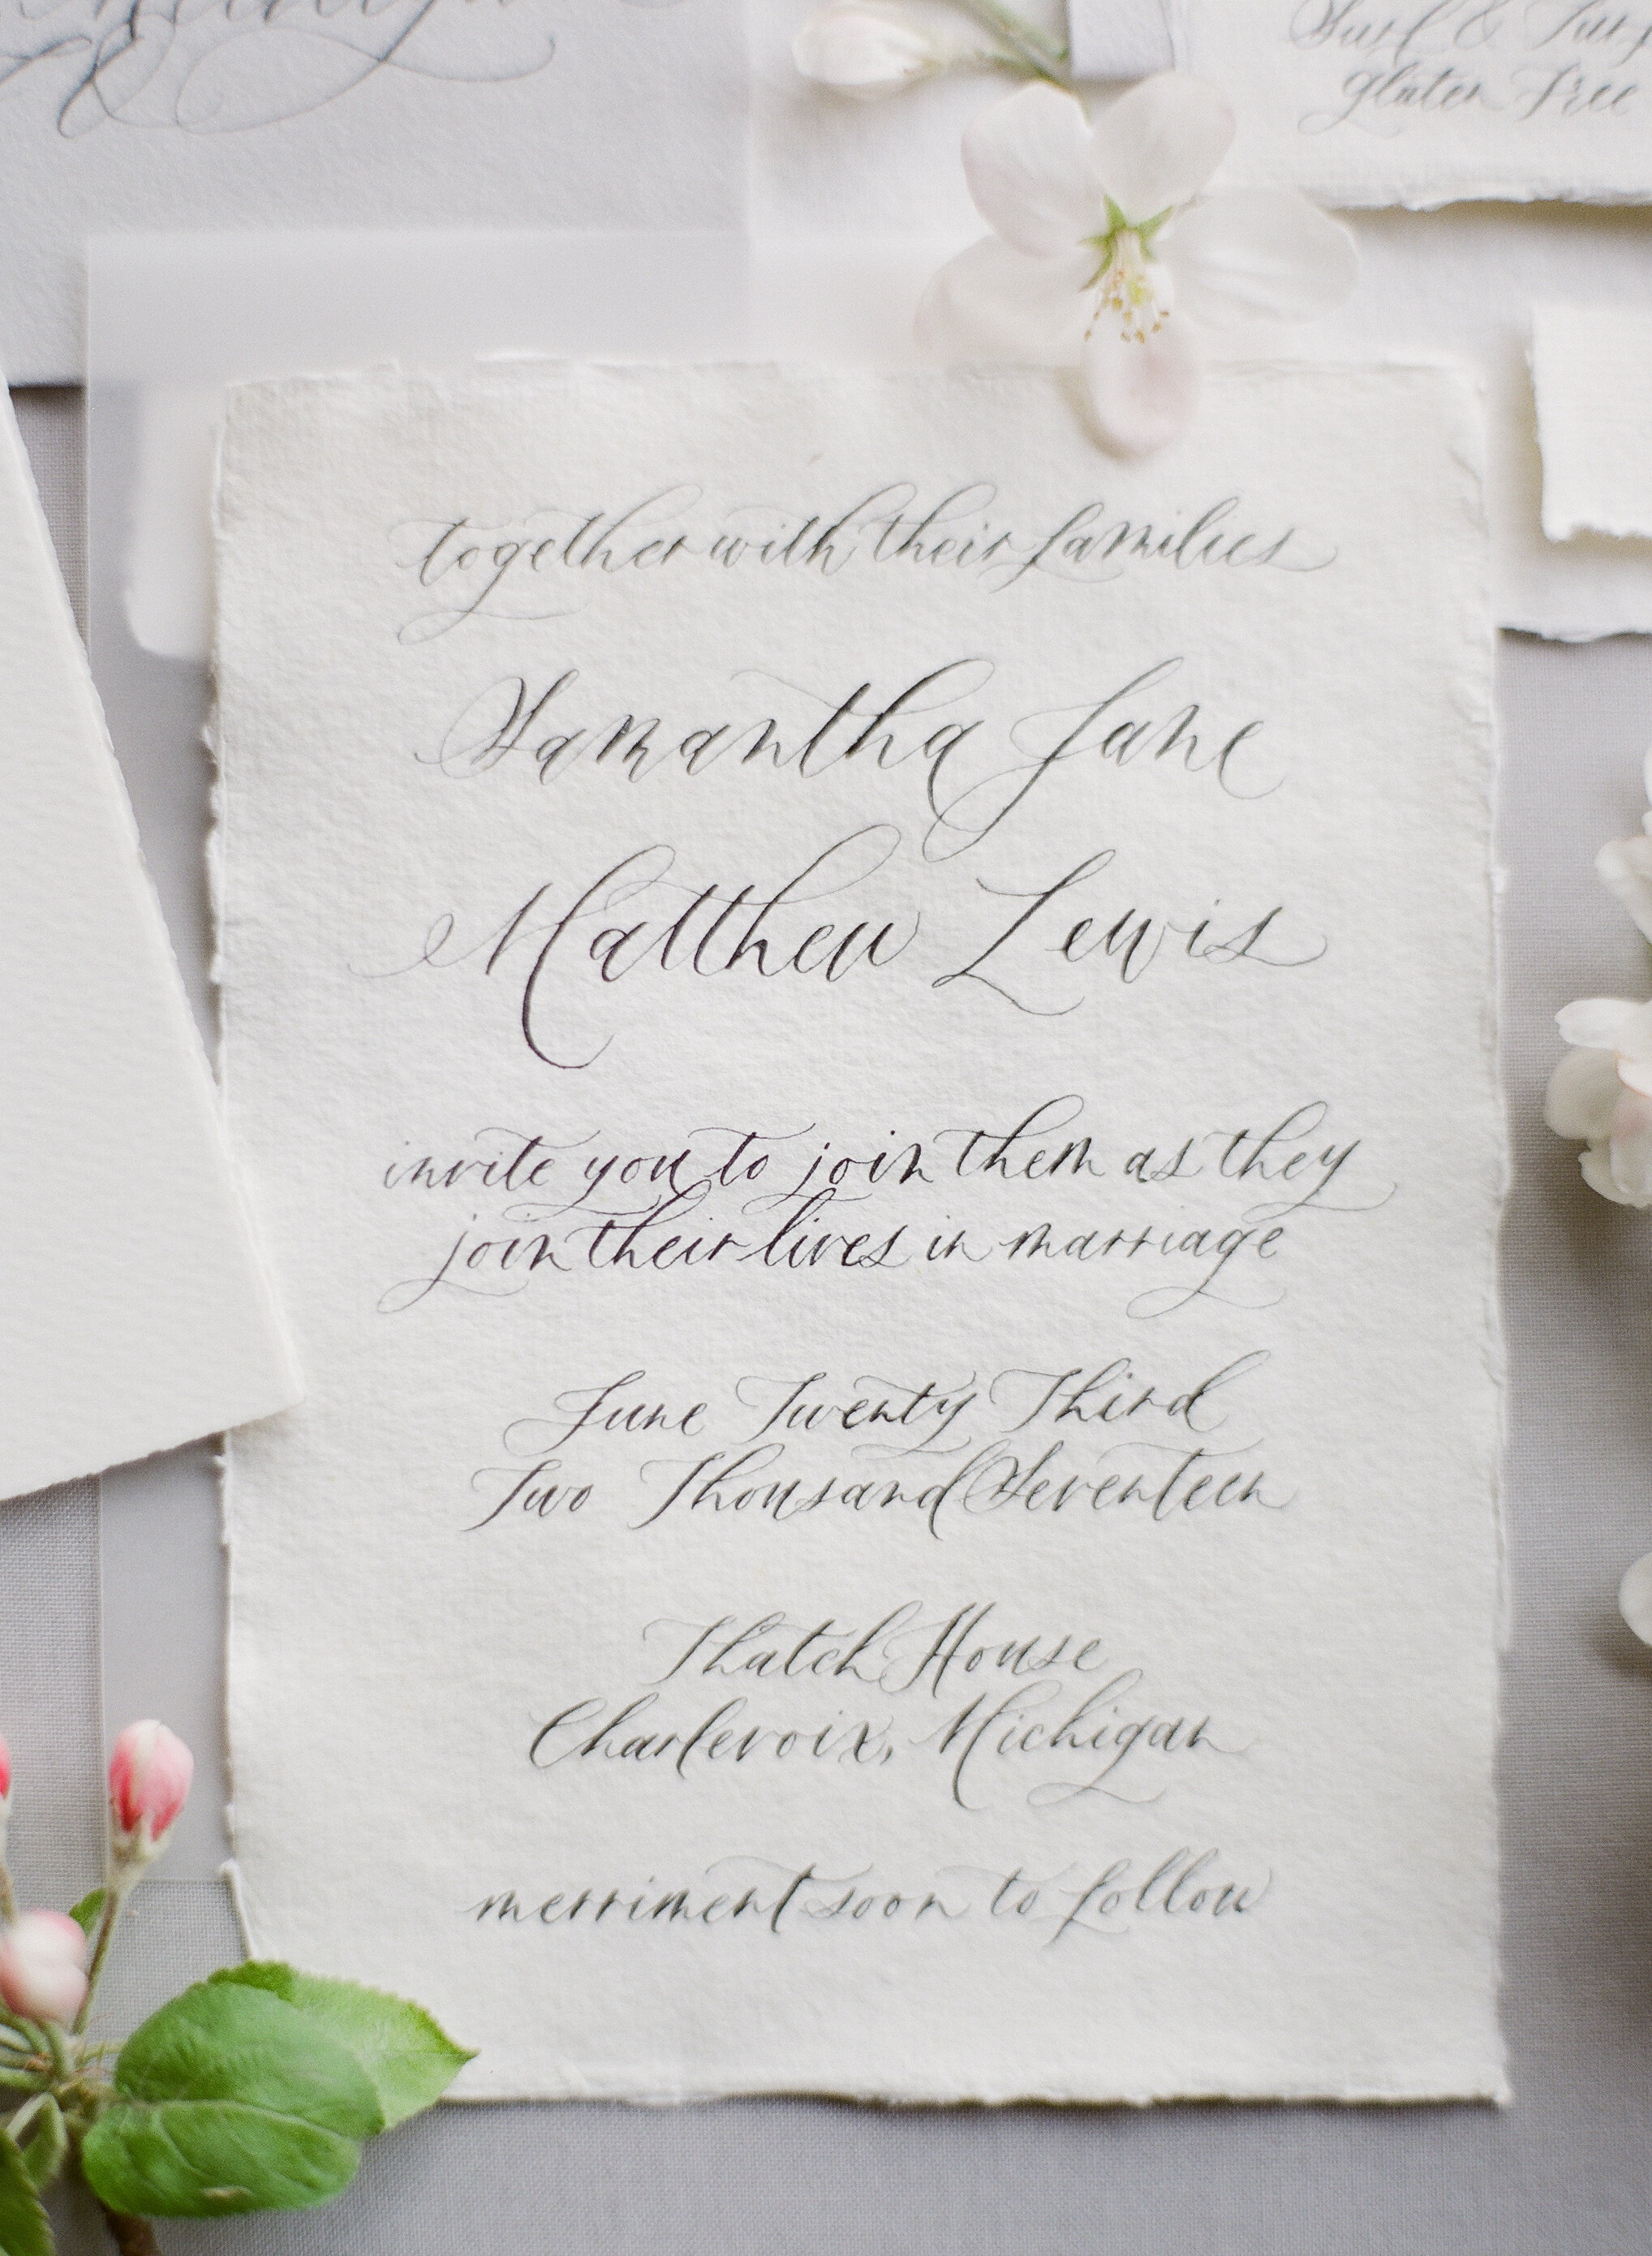 Surf & Turf
gluten free
together with their families
Samantha Jane
Matthew Lewis
invite you to join them as they
join their lives in marriage
June Twenty Third
Two Thousand Seventeen
Thatch House
Charlevoix, Michigan
merriment soon to follow